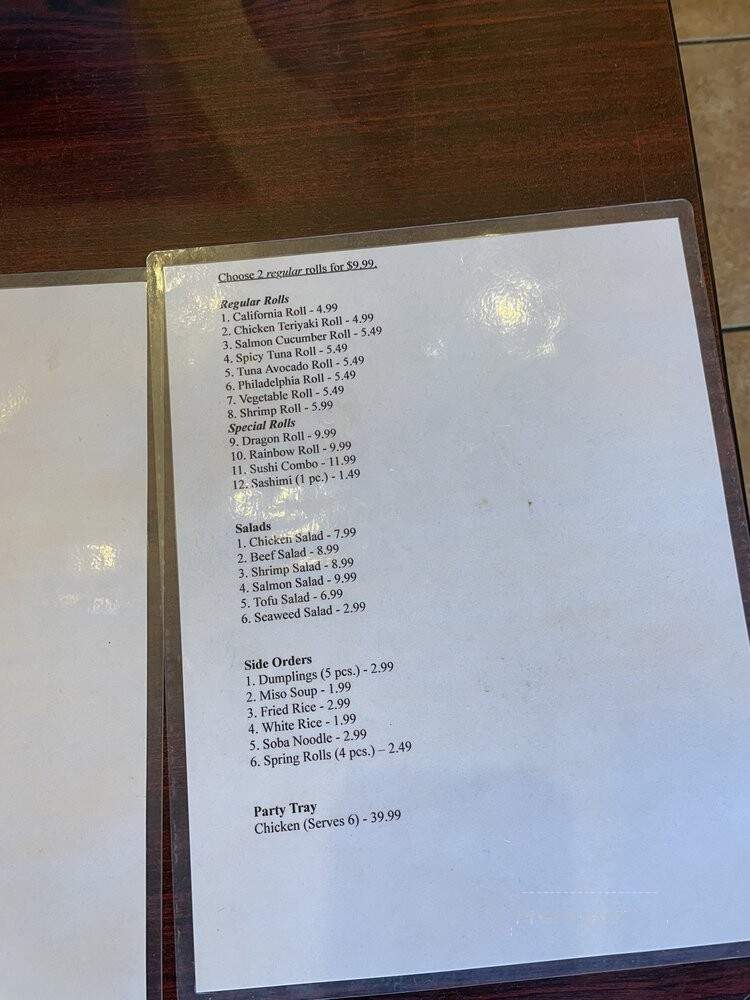 Choose 2 regular rolls for $9.99.
Regular Rolls
1. California Roll - 4.99
2. Chicken Teriyaki Roll - 4.99
3. Salmon Cucumber Roll - 5.49
4. Spicy Tuna Roll - 5.49
5. Tuna Avocado Roll - 5.49
6. Philadelphia Roll - 5.49
7. Vegetable Roll - 5.49
8. Shrimp Roll - 5.99
Special Rolls
9. Dragon Roll - 9.99
10. Rainbow Roll - 9.99
11. Sushi Combo - 11.99
12. Sashimi (1 pc.) - 1.49
Salads
1. Chicken Salad - 7.99
2. Beef Salad - 8.99
3. Shrimp Salad - 8.99
4. Salmon Salad - 9.99
5. Tofu Salad - 6.99
6. Seaweed Salad - 2.99
Side Orders
1. Dumplings (5 pcs.) - 2.99
2. Miso Soup - 1.99
3. Fried Rice - 2.99
4. White Rice - 1.99
5. Soba Noodle - 2.99
6. Spring Rolls (4 pcs.) – 2.49
Party Tray
Chicken (Serves 6) - 39.99